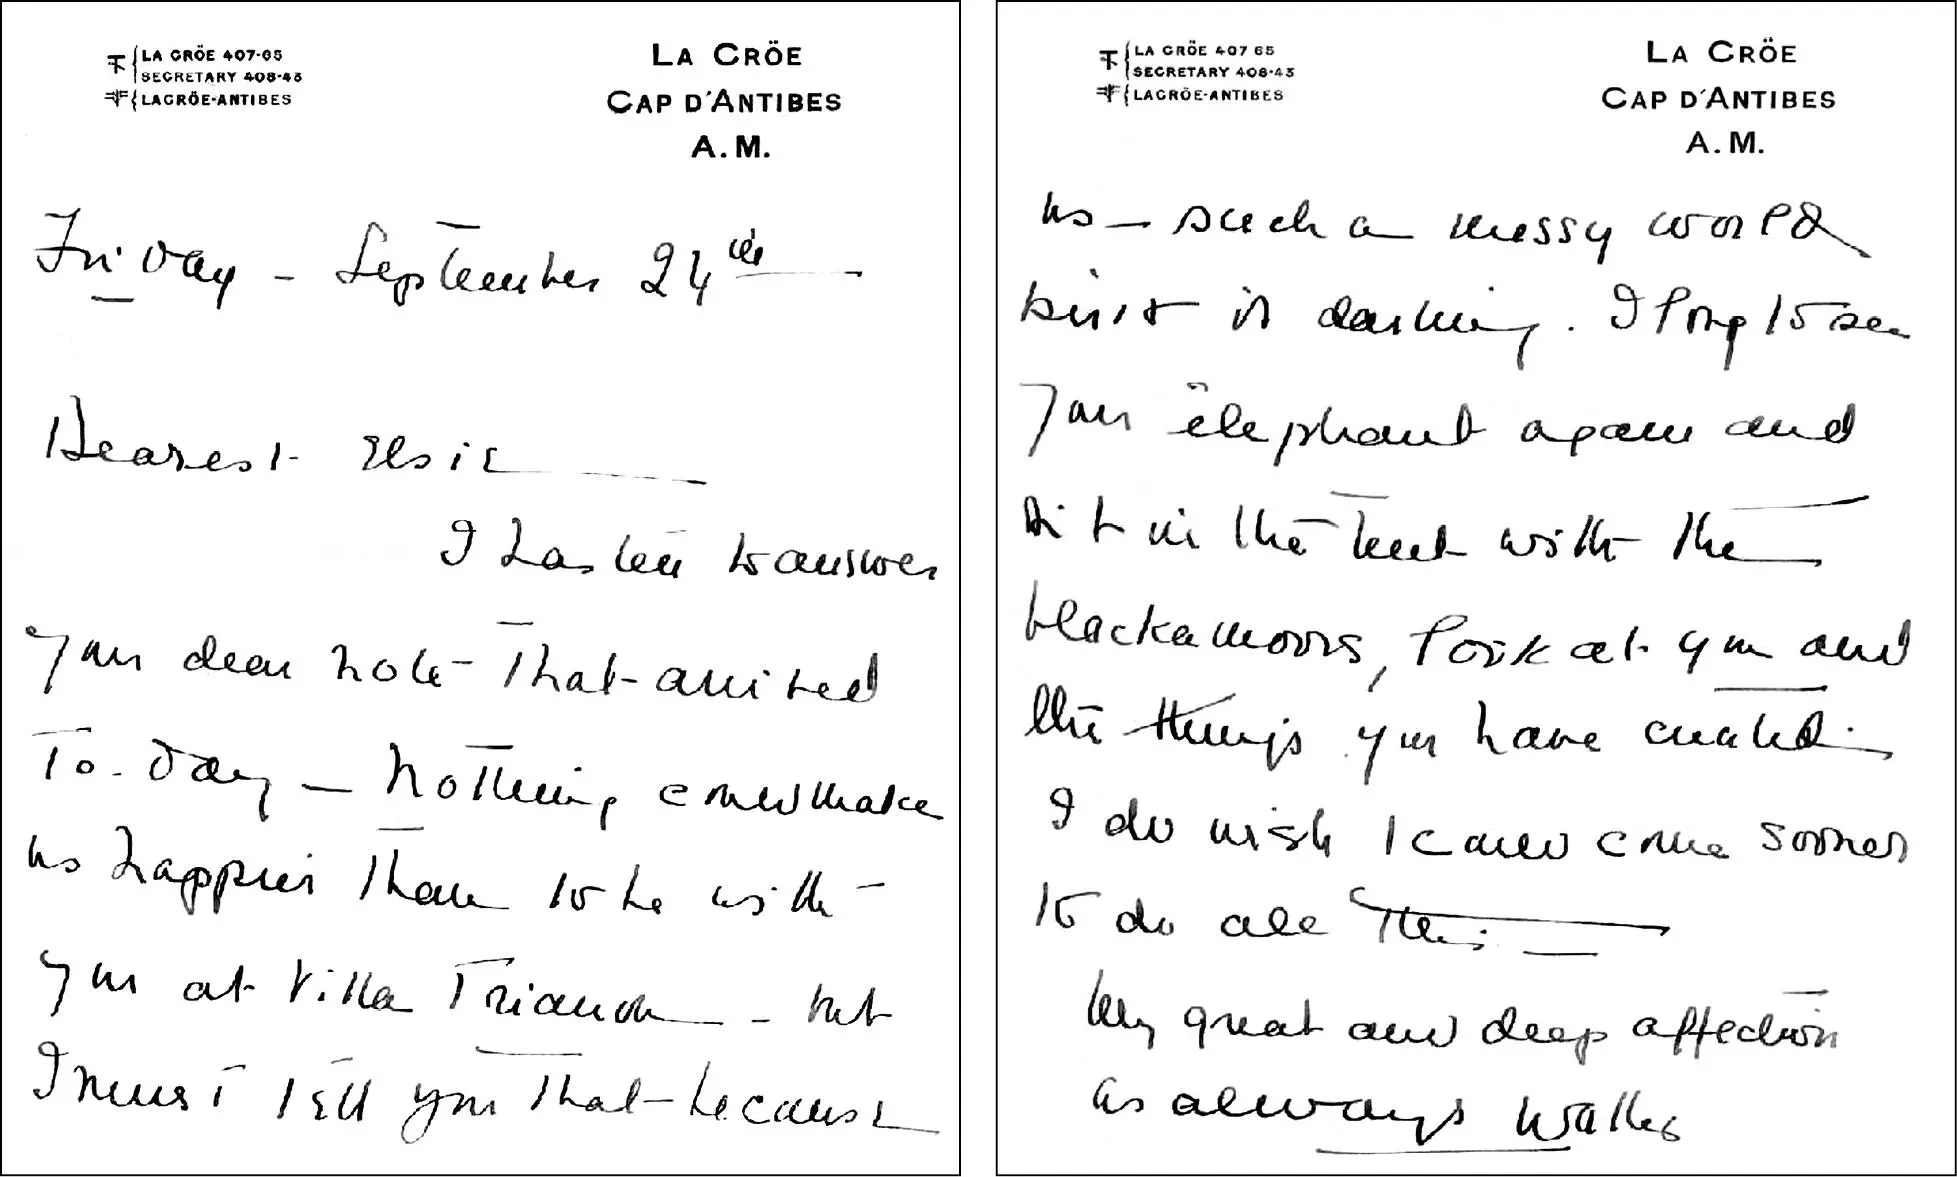 LA CRÖE 407-65
SECRETARY 408-43
LACRÖE-ANTIBES
LA CRÖE
CAP D'ANTIBES
A.M.
Friday - September 24th
Dearest Elsie
I hasten to answer
your dear note - that arrived
To-day - Nothing could make
us happier than to be with
you at Villa Trianon - but
I must tell you that because
LA CRÖE 407 65
SECRETARY 408-43
LACRÖE-ANTIBES
LA CRÖE
CAP D'ANTIBES
A.M.
us - such a messy world
darling. I long to see
your elephant again and
sit in the tent with the
blackamoors, look at you and
the things you have created.
I do wish I could come sooner
to do all this -
My great and deep affection
as always Wallis